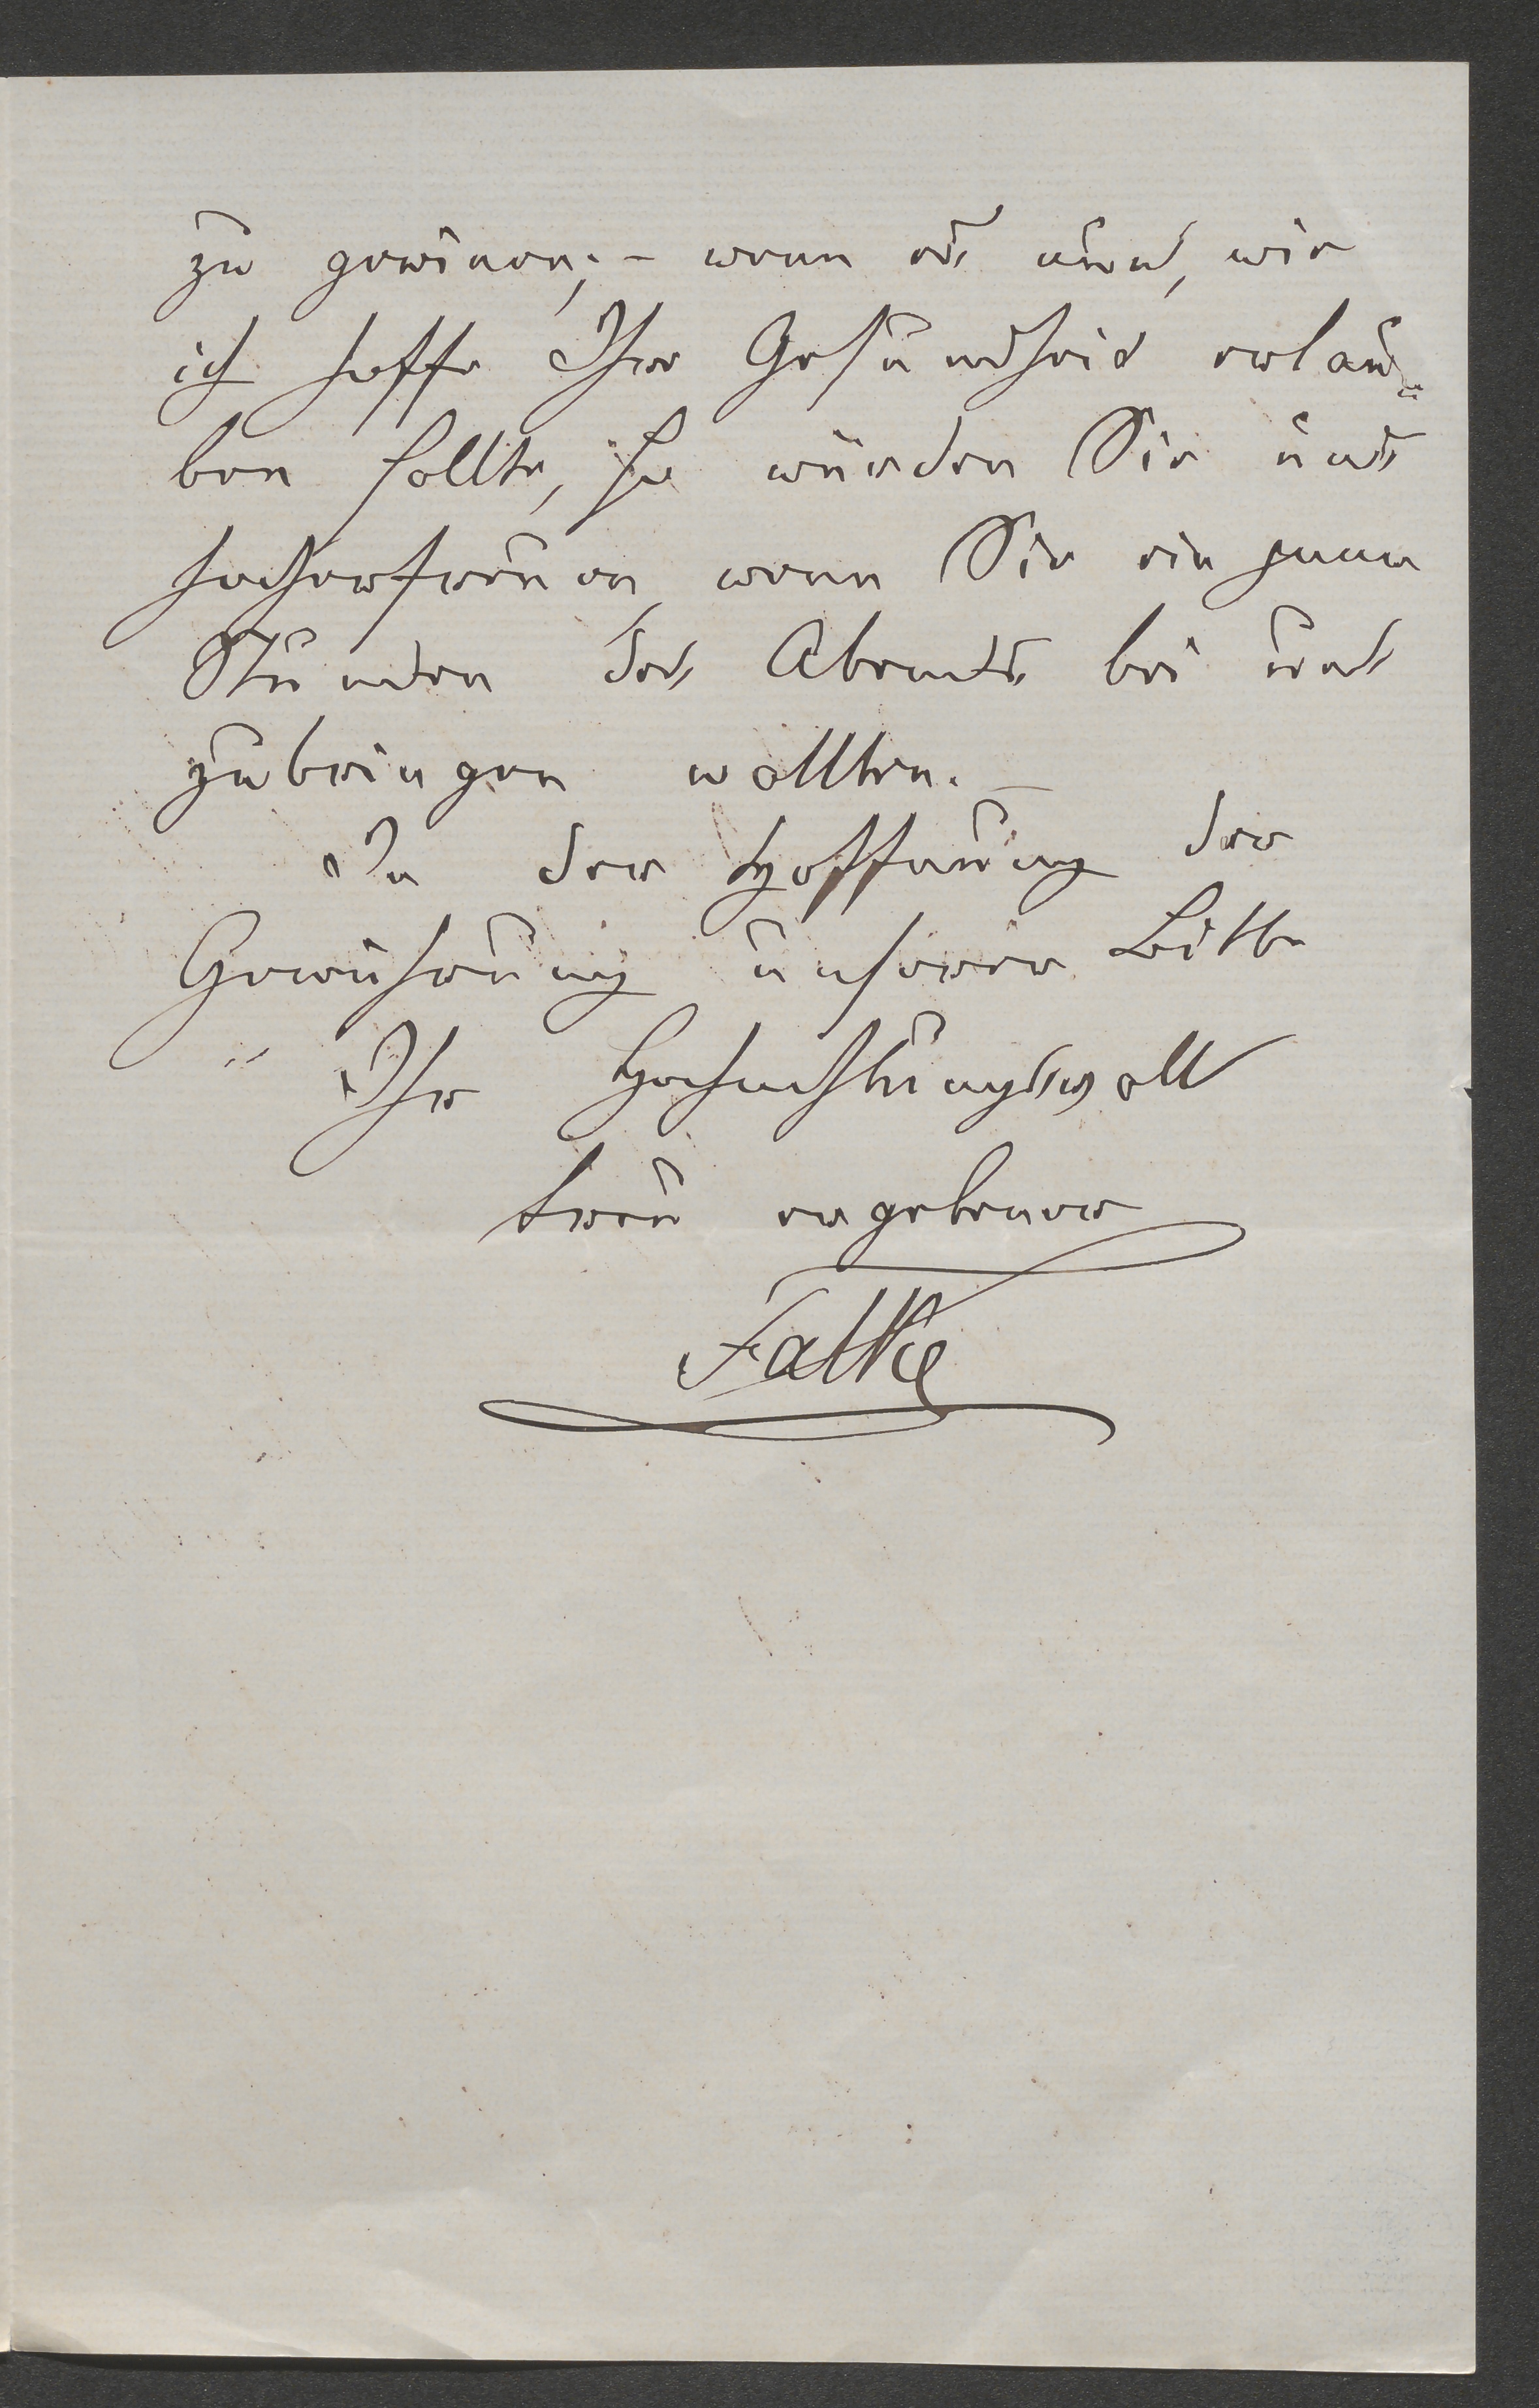 zu gewinnen; – wenn es uns, wie
ich hoffe Ihre Gesundheid erlau⸗
ben sollte, so würden Sie uns
hocherfreuen, wenn Sie ein paar
Stunden des Abends bei uns
zubringen wollten. –
In der Hoffnung der
Gewährung unserer Bitte
Ihr Hochachtungsvoll
treu ergebener
Falke